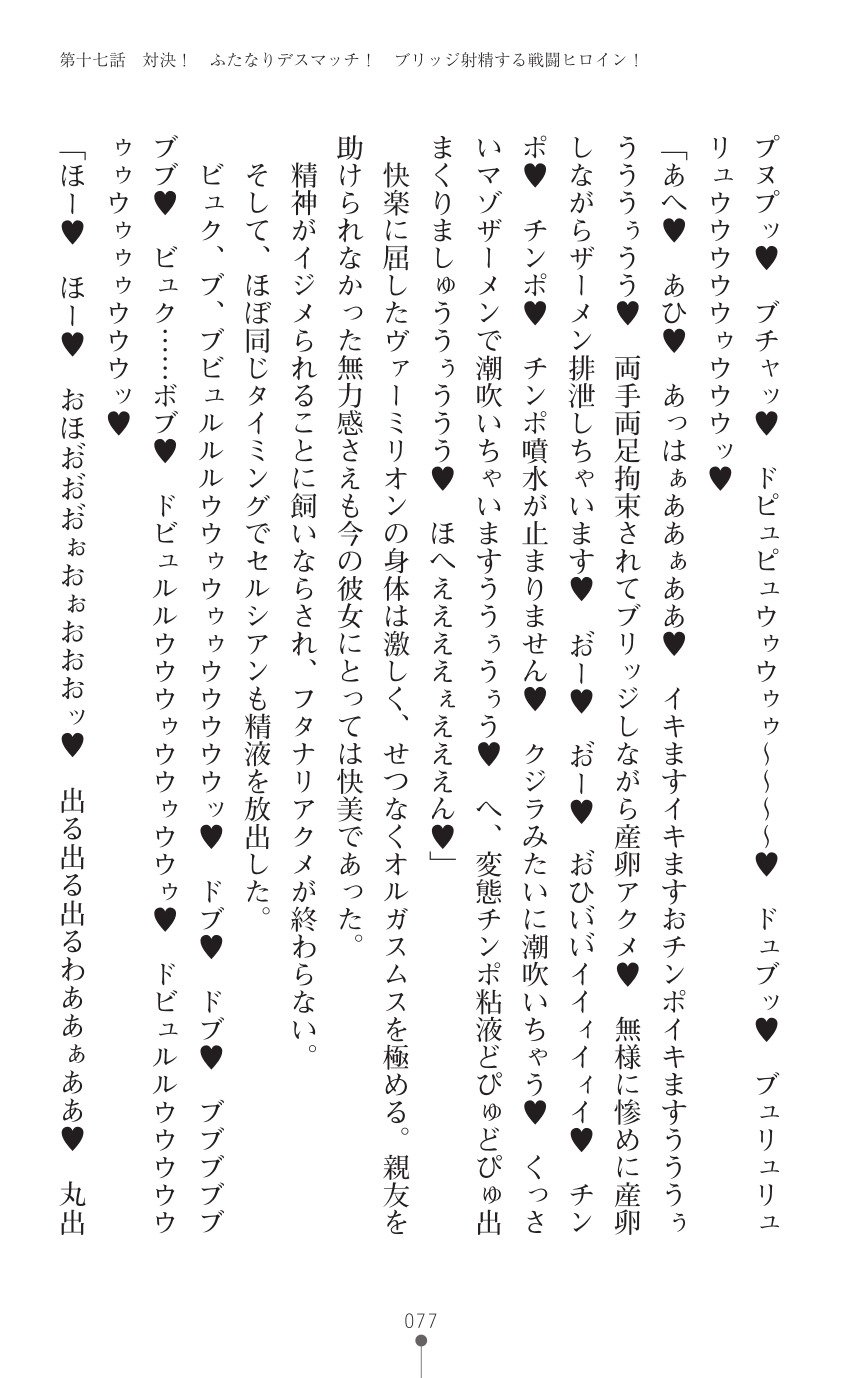 第十七話　対決！　ふたなりデスマッチ！　ブリッジ射精する戦闘ヒロイン！
プヌプッ♥　ブチャッ♥　ドピュピュウゥウゥゥ～～～～♥　ドュブッ♥　ブュリュリュ
リュウウウウウゥウウウッ♥
「あへ♥　あひ♥　あっはぁああぁああ♥　イキますイキますおチンポイキますうううぅ
うううぅうう♥　両手両足拘束されてブリッジしながら産卵アクメ♥　無様に惨めに産卵
しながらザーメン排泄しちゃいます♥　お゛ー♥　お゛ー♥　お゛ひい゛い゛イイィイィイ♥　チン
ポ♥　チンポ♥　チンポ噴水が止まりません♥　クジラみたいに潮吹いちゃう♥　くっさ
いマゾザーメンで潮吹いちゃいますううぅうぅう♥　へ、変態チンポ粘液どぴゅどぴゅ出
まくりましゅううぅううう♥　ほへええええぇえええん♥」
　快楽に屈したヴァーミリオンの身体は激しく、せつなくオルガスムスを極める。親友を
助けられなかった無力感さえも今の彼女にとっては快美であった。
　精神がイジメられることに飼いならされ、フタナリアクメが終わらない。
　そして、ほぼ同じタイミングでセルシアンも精液を放出した。
　ビュク、ブ、ブビュルルルウウゥウゥゥウウウウウッ♥　ドブ♥　ドブ♥　ブブブブブ
ブブ♥　ビュク……ボブ♥　ドビュルルウウウゥウウゥウウゥ♥　ドビュルルウウウウウ
ゥゥウゥゥゥウウウッ♥
「ほー♥　ほー♥　おほお゛お゛お゛ぉおぉおおおッ♥　出る出る出るわああぁああ♥　丸出
077